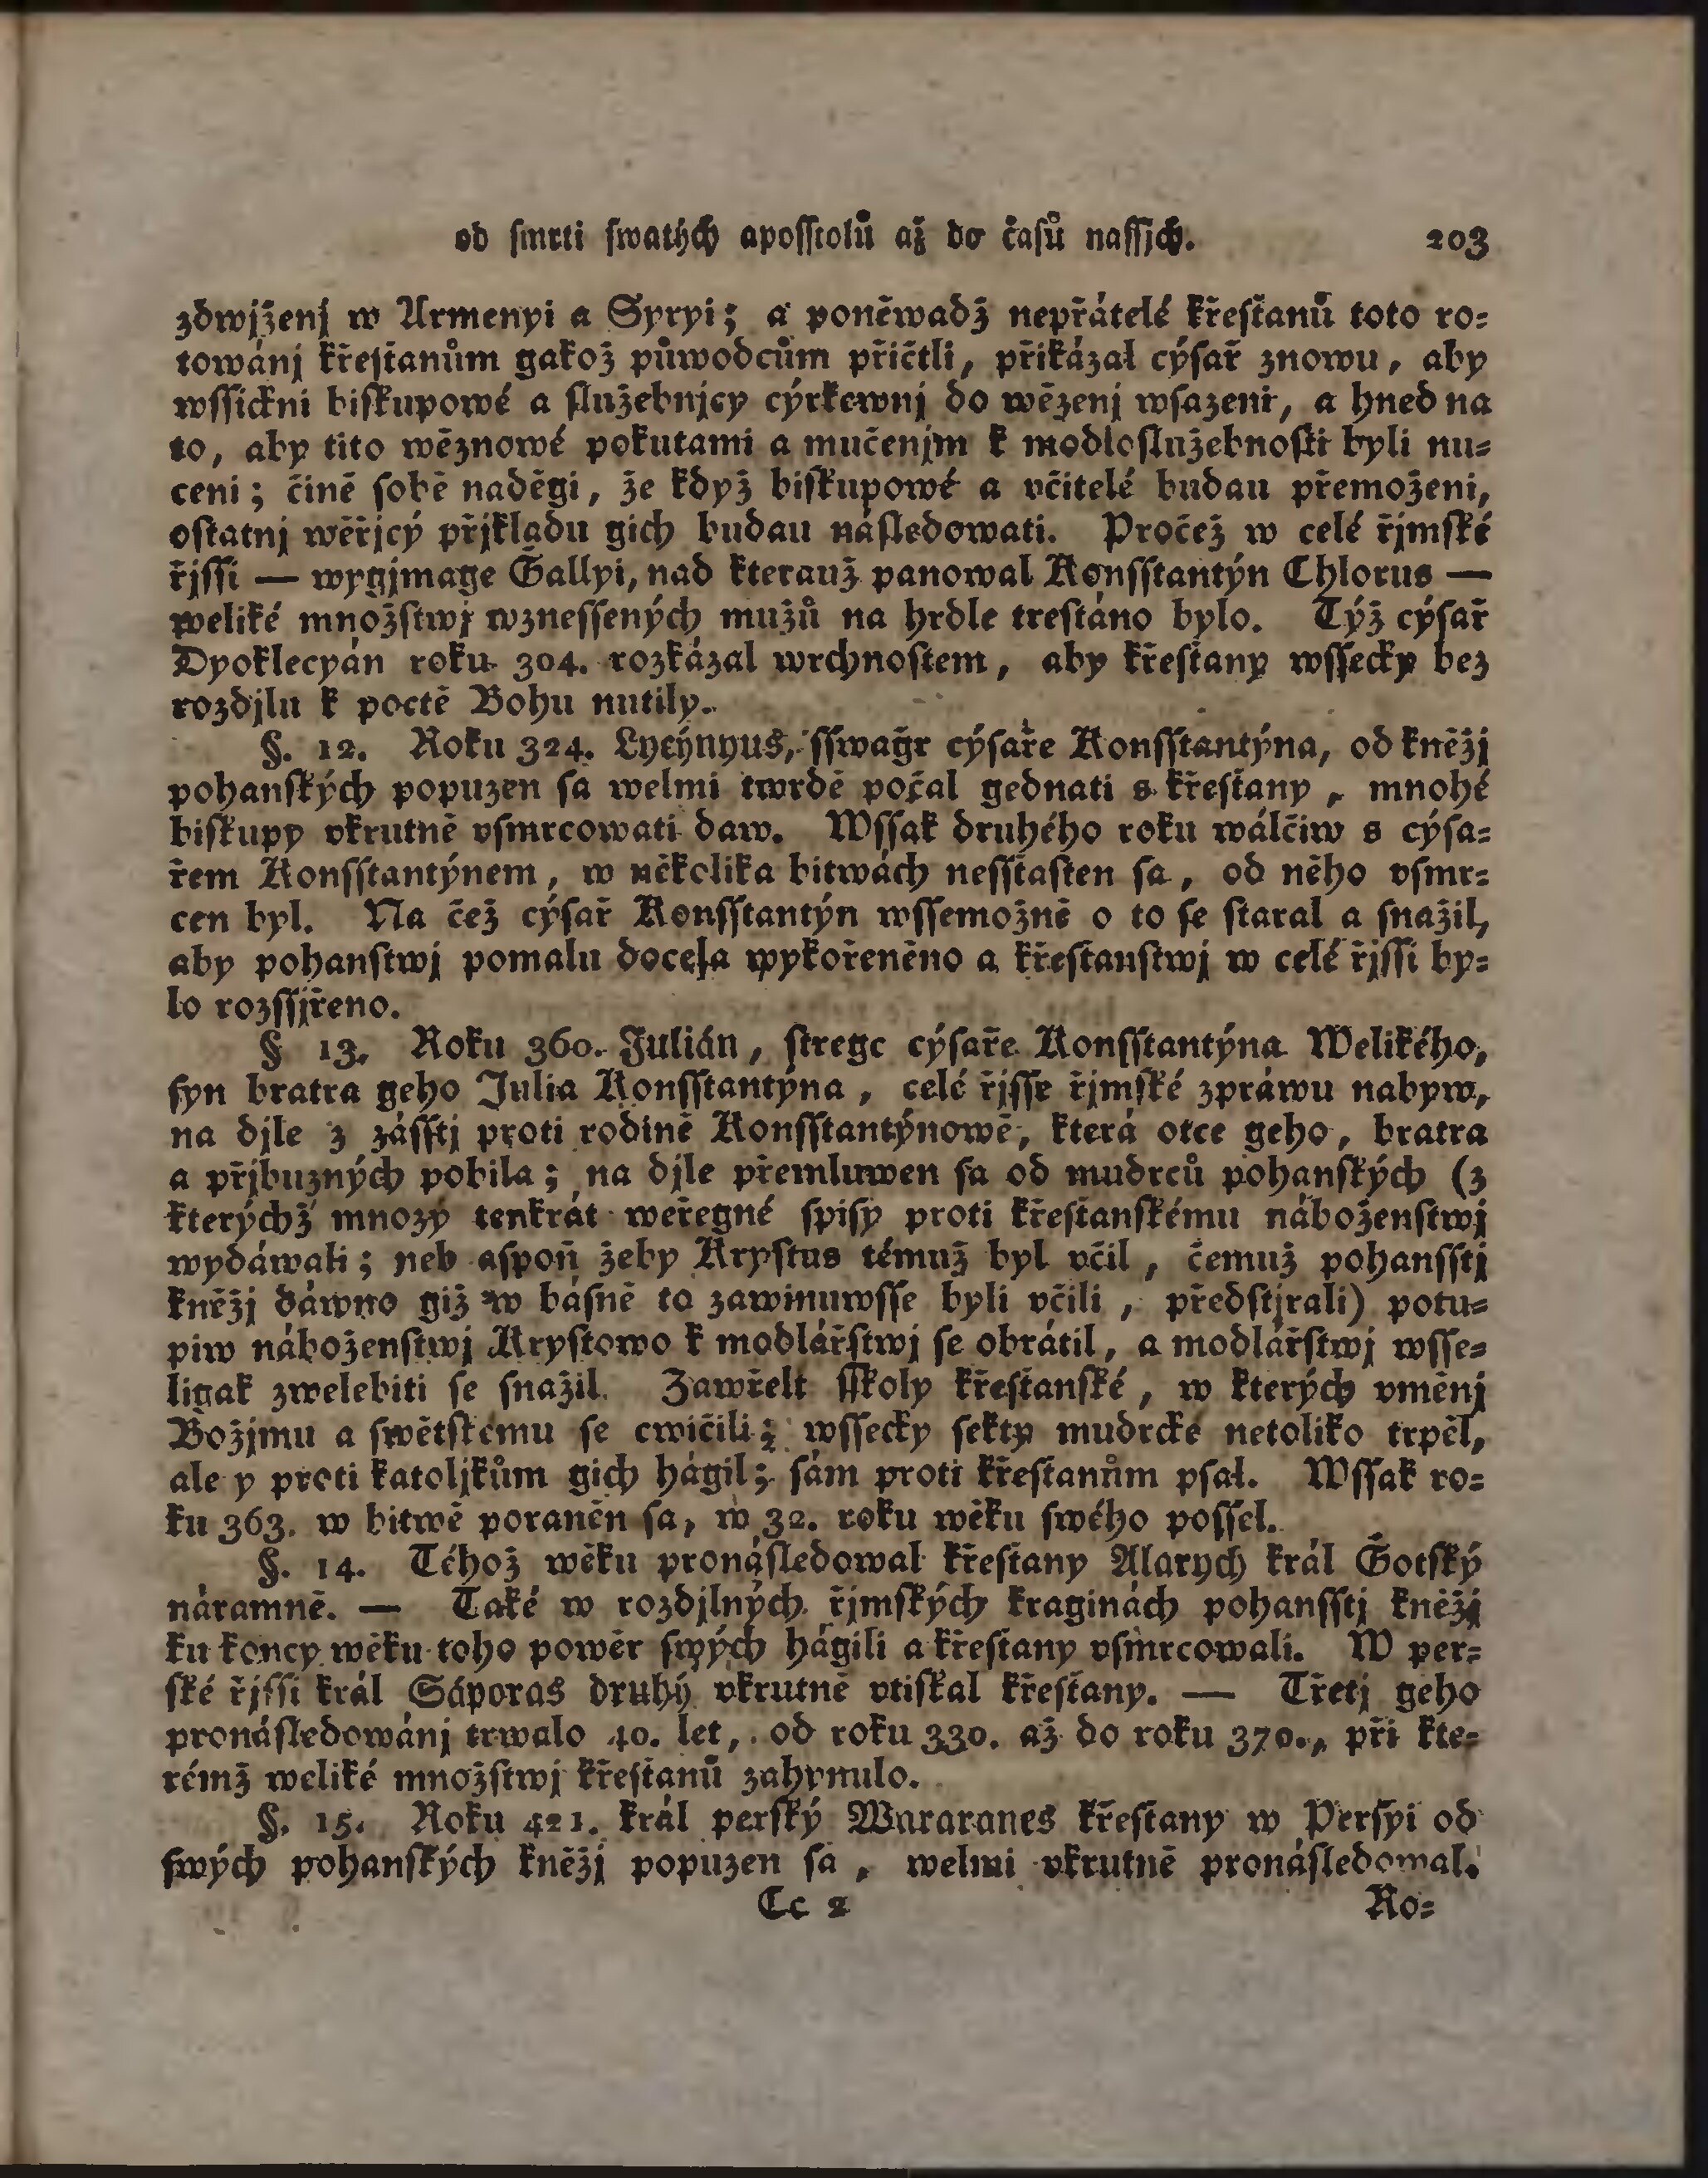 od ſmrti ſwatých apoſſtolů až do čaſů naſſich. 203
zdwjženj w Armenyi a Syryi; a poněwadž nepřátelé křeſťanů toto ro=
towánj křeſťanům gakož půwodcům přičtli, přikázal cýſař znowu, aby
wſſickni biſkupowé a ſlužebnjcy cýrkewnj do wězenj wſazeni, a hned na
to, aby tito wěznowé pokutami a mučenjm k modloſlužebnoſti byli nu=
ceni; čině ſobě naděgi, že když biſkupowé a včitelé budau přemoženi,
oſtatnj wěřjcý přjkladu gich budau náſledowati. Pročež w celé řjmſké
řjſſi — wygjmage Gallyi, nad kterauž panowal Konſſtantýn Chlorus —
weliké množſtwj wzneſſených mužů na hrdle treſtáno bylo. Týž cýſař
Dyoklecyán roku 304. rozkázal wrchnoſtem, aby křeſťany wſſecky bez
rozdjlu k poctě Bohu nutily.
§. 12. Roku 324. Lycýnyus, ſſwagr cýſaře Konſſtantýna, od kněžj
pohanſkých popuzen ſa welmi twrdě počal gednati s křeſťany, mnohé
biſkupy vkrutně vſmrcowati daw. Wſſak druhého roku wálčiw s cýſa=
řem Konſſtantýnem, w několika bitwách neſſťaſten ſa, od něho vſmr=
cen byl. Na čež cýſař Konſſtantýn wſſemožně o to ſe ſtaral a ſnažil,
aby pohanſtwj pomalu docela wykořeněno a křeſťanſtwj w celé řjſſi by=
lo rozſſjřeno.
§ 13. Roku 360. Julián, ſtregc cýſaře Konſſtantýna Welikého,
ſyn bratra geho Julia Konſſtantýna, celé řjſſe řjmſké zpráwu nabyw,
na djle z záſſtj proti rodině Konſſtantýnowě, která otce geho, bratra
a přjbuzných pobila; na djle přemluwen ſa od mudrců pohanſkých (z
kterýchž mnozý tenkrát weřegné ſpiſy proti křeſťanſkému náboženſtwj
wydáwali; neb aſpoň žeby Kryſtus témuž byl včil, čemuž pohanſſtj
kněžj dáwno giž w báſně to zawinuwſſe byli včili, předſtjrali) potu=
piw náboženſtwj Kryſtowo k modlářſtwj ſe obrátil, a modlářſtwj wſſe=
ligak zwelebiti ſe ſnažil. Zawřelt ſſkoly křeſťanſké, w kterých vměnj
Božjmu a ſwětſkému ſe cwičili; wſſecky ſekty mudrcké netoliko trpěl,
ale y proti katoljkům gich hágil; ſám proti křeſťanům pſal. Wſſak ro=
ku 363. w bitwě poraněn ſa, w 32. roku wěku ſwého poſſel.
§. 14. Téhož wěku pronáſledowal křeſťany Alarych král Gotſký
náramně. — Také w rozdjlných řjmſkých kraginách pohanſſtj kněžj
ku koncy wěku toho powěr ſwých hágili a křeſťany vſmrcowali. W per=
ſké řjſſi král Sáporas druhý vkrutně vtiſkal křeſťany. — Třetj geho
pronáſledowánj trwalo 40. let, od roku 330. až do roku 370., při kte=
rémž weliké množſtwj křeſťanů zahynulo.
§. 15. Roku 421. král perſký Wararanes křeſťany w Perſyi od
ſwých pohanſkých kněžj popuzen ſa, welmi vkrutně pronáſledowal.
Cc 2 Ro=